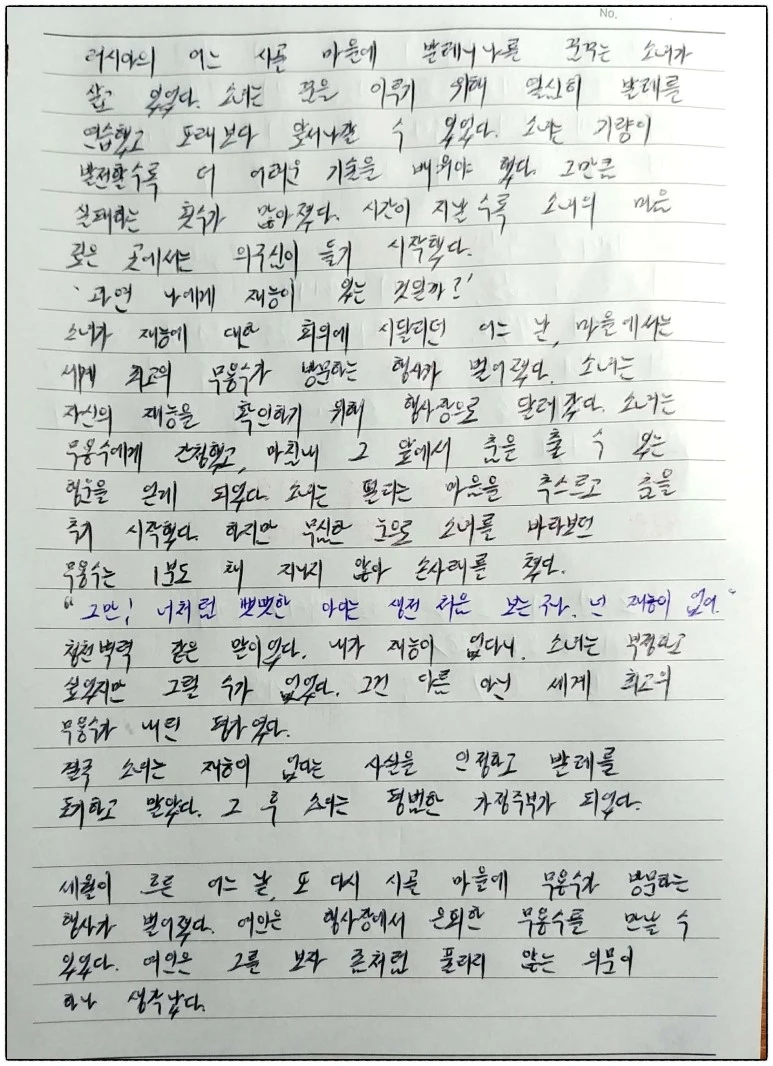 No.
러시아의 어느 시골 마을에 발레리나를 꿈꾸는 소녀가
살고 있었다. 소녀는 꿈을 이루기 위해 열심히 발레를
연습했고 또래보다 앞서나갈 수 있었다. 소녀는 기량이
발전할수록 더 어려운 기술을 배워야 했다. 그만큼
실패하는 횟수가 많아졌다. 시간이 지날수록 소녀의 마음
깊은 곳에서는 의구심이 들기 시작했다.
'과연 나에게 재능이 있는 것일까?'
소녀가 재능에 대한 회의에 시달리던 어느 날, 마을에서는
세계 최고의 무용수가 방문하는 행사가 벌어졌다. 소녀는
자신의 재능을 확인하기 위해 행사장으로 달려갔다. 소녀는
무용수에게 간청했고, 마침내 그 앞에서 춤을 출 수 있는
행운을 얻게 되었다. 소녀는 떨리는 마음을 추스르고 춤을
추기 시작했다. 하지만 무심한 눈으로 소녀를 바라보던
무용수는 1분도 채 지나지 않아 손사래를 쳤다.
"그만! 너처럼 뻣뻣한 아이는 생전 처음 보는구나. 넌 재능이 없어."
청천벽력 같은 말이었다. 내가 재능이 없다니. 소녀는 부정하고
싶었지만 그럴 수가 없었다. 그건 다름 아닌 세계 최고의
무용수가 내린 평가였다.
결국 소녀는 재능이 없다는 사실을 인정하고 발레를
포기하고 말았다. 그 후 소녀는 평범한 가정주부가 되었다.
세월이 흐른 어느 날, 또 다시 시골 마을에 무용수가 방문하는
행사가 벌어졌다. 여인은 행사장에서 은퇴한 무용수를 만날 수
있었다. 여인은 그를 보자 좀처럼 풀리지 않는 의문이
하나 생각났다.